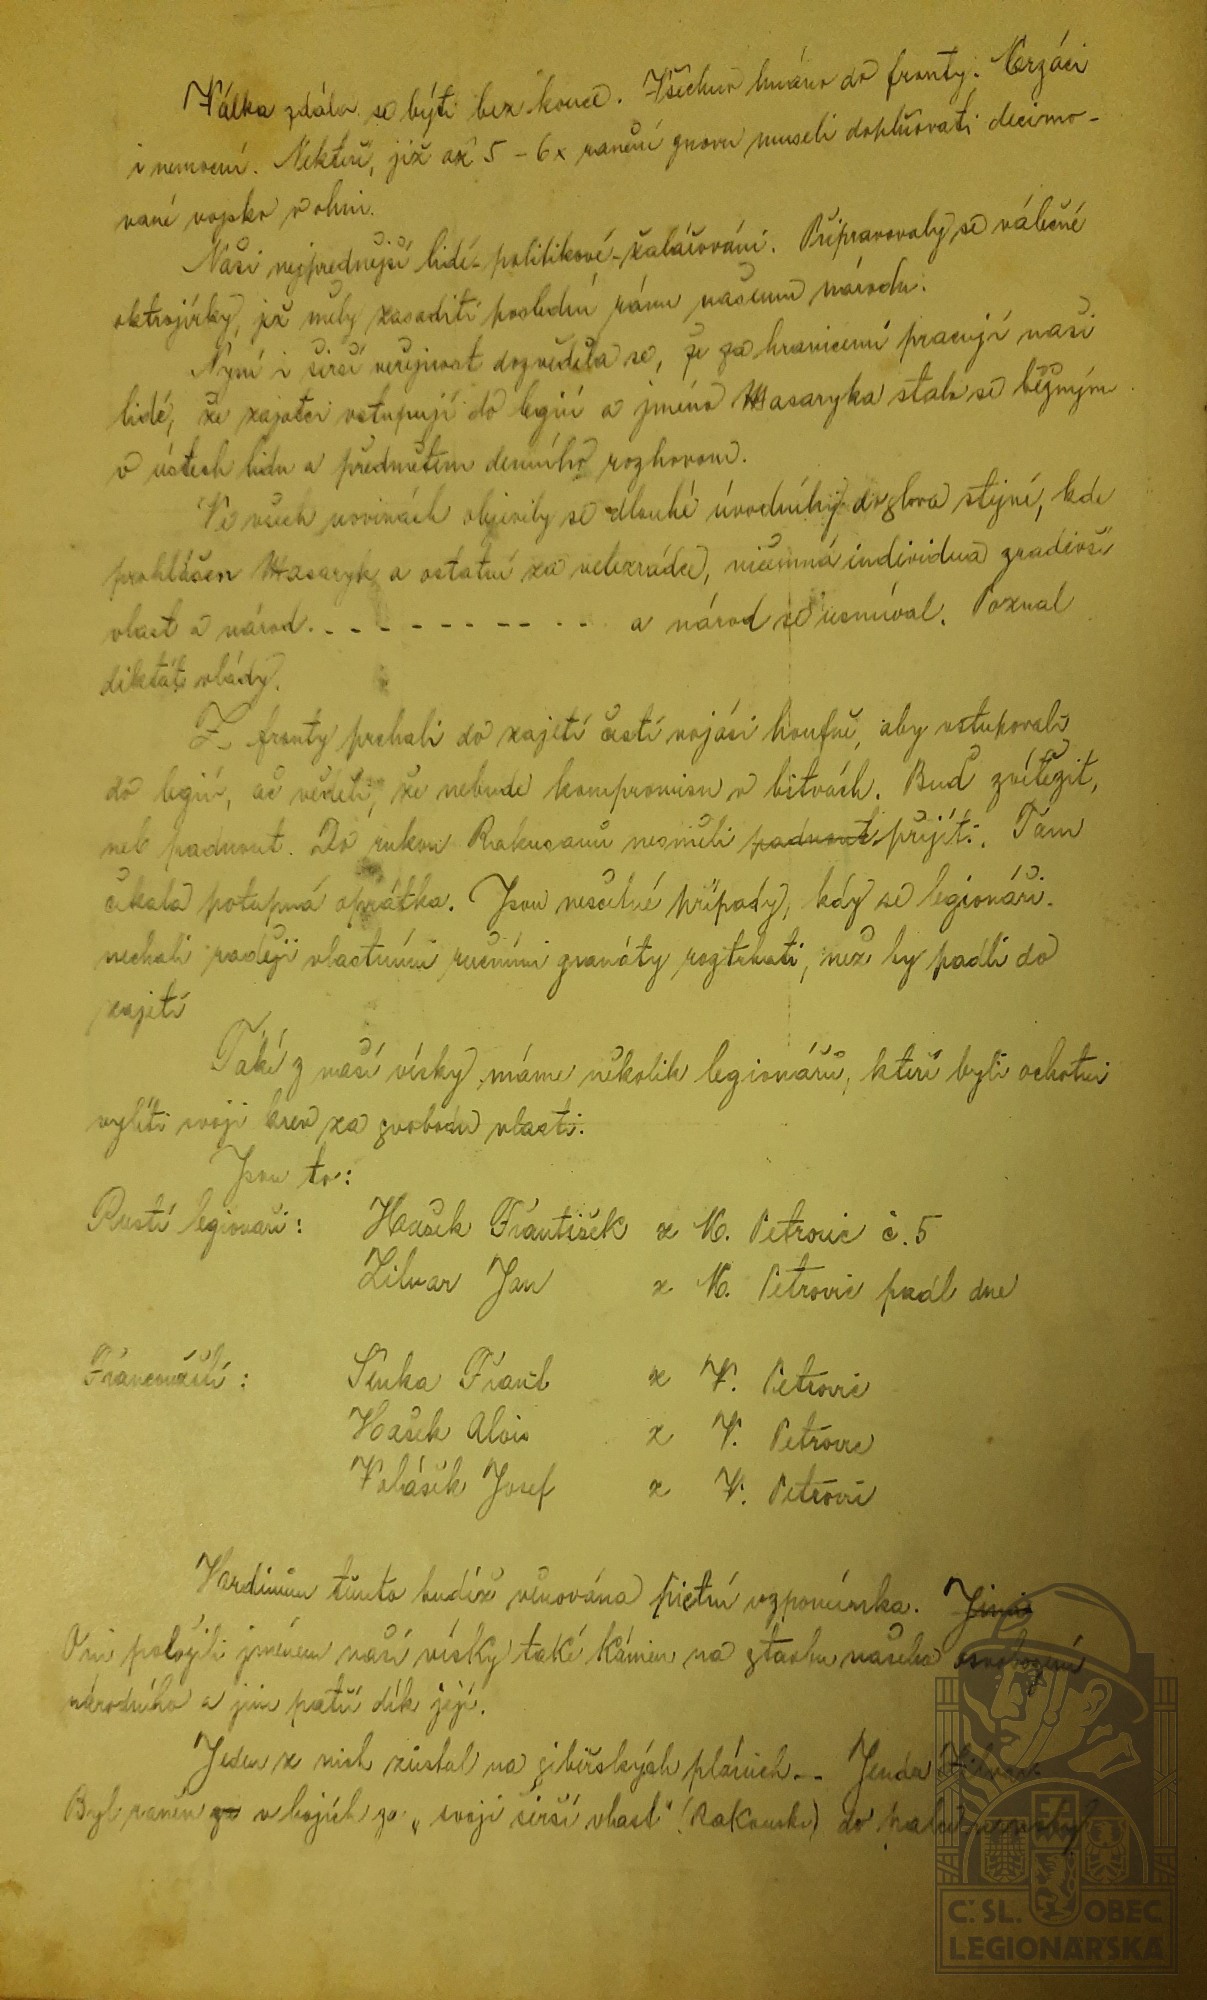 Válka zdála se býti bez konce. Všechno hnáno do fronty. Mrzáci
i nemocní. Někteří, již až 5 - 6x ranění znovu museli doplňovati decimo-
vané vojsko v ohni.
Naši nejpřednější lidé - politikové - žalářováni. Připravovaly se válečné
oktrojírky, jež měly zasaditi poslední ránu našemu národu.
Nyní i širší veřejnost dozvěděla se, že za hranicemi pracují naši
lidé, že zajatci vstupují do legií a jméno Masaryka stalo se běžným
v ústech lidu a předmětem denního rozhovoru.
Ve všech novinách objevily se dlouhé úvodníky doslova stejné, kde
prohlášen Masaryk a ostatní za velezrádce, ničemná individua zradivší
vlast a národ. - - - - - - - - - - - a národ se usmíval. Poznal
diktát vlády.
Z fronty prchali do zajetí čestí vojáci houfně, aby vstupovali
do legií, ač věděli, že nebude kompromisu v bitvách. Buď zvítězit,
neb padnout. Do rukou Rakušanů nesměli padnout přijíti. Tam
čekala potupná oprátka. Jsou nesčetné případy, kdy se legionáři
nechali raději vlastními ručními granáty roztrhati, než by padli do
zajetí
Také z naší vísky máme několik legionářů, kteří byli ochotni
vylíti svoji krev za svobodu vlasti.
Jsou to:
Rustí legionáři: Hašek František z M. Petrovic č. 5
Zilvar Jan z M. Petrovic padl dne
Francouzští: Sinka Frant z V. Petrovic
Hašek Alois z V. Petrovic
Volášek Josef z V. Petrovic
Hrdinům těmto budiž věnována pietní vzpomínka. Jimi
Oni položili jménem naší vísky také kámen na stavbu našeho osvobození
národního a jim patří dík její.
Jeden z nich zůstal na sibiřských pláních -- Jenda Zilvar.
Byl raněn za v bojích za "svoji širší vlast" (Rakousko) do
Č. SL. OBEC
LEGIONÁŘSKÁ